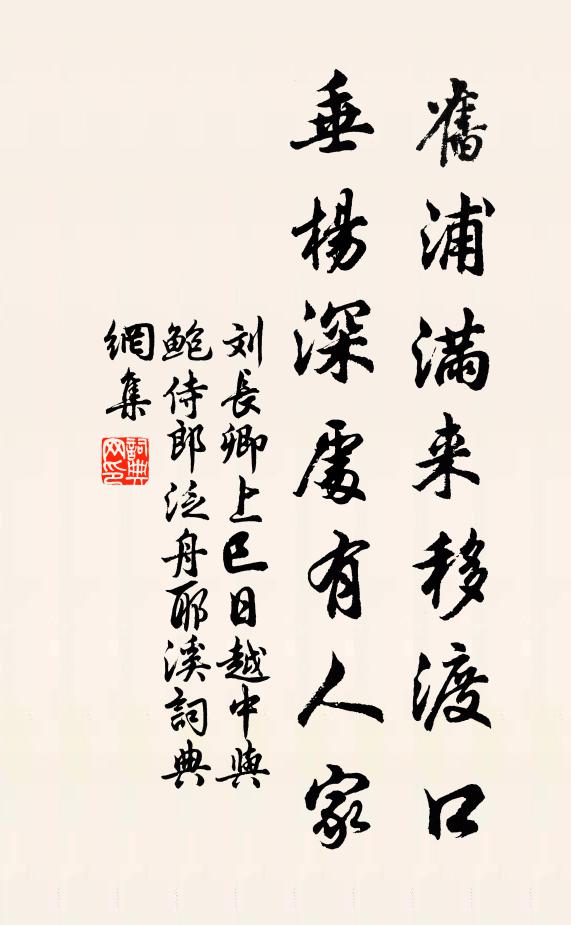 舊浦滿来移渡口
垂楊深處有人家
刘長卿上巳日越中與
鮑侍郎泛舟耶溪詞典
網集
詞典
网印